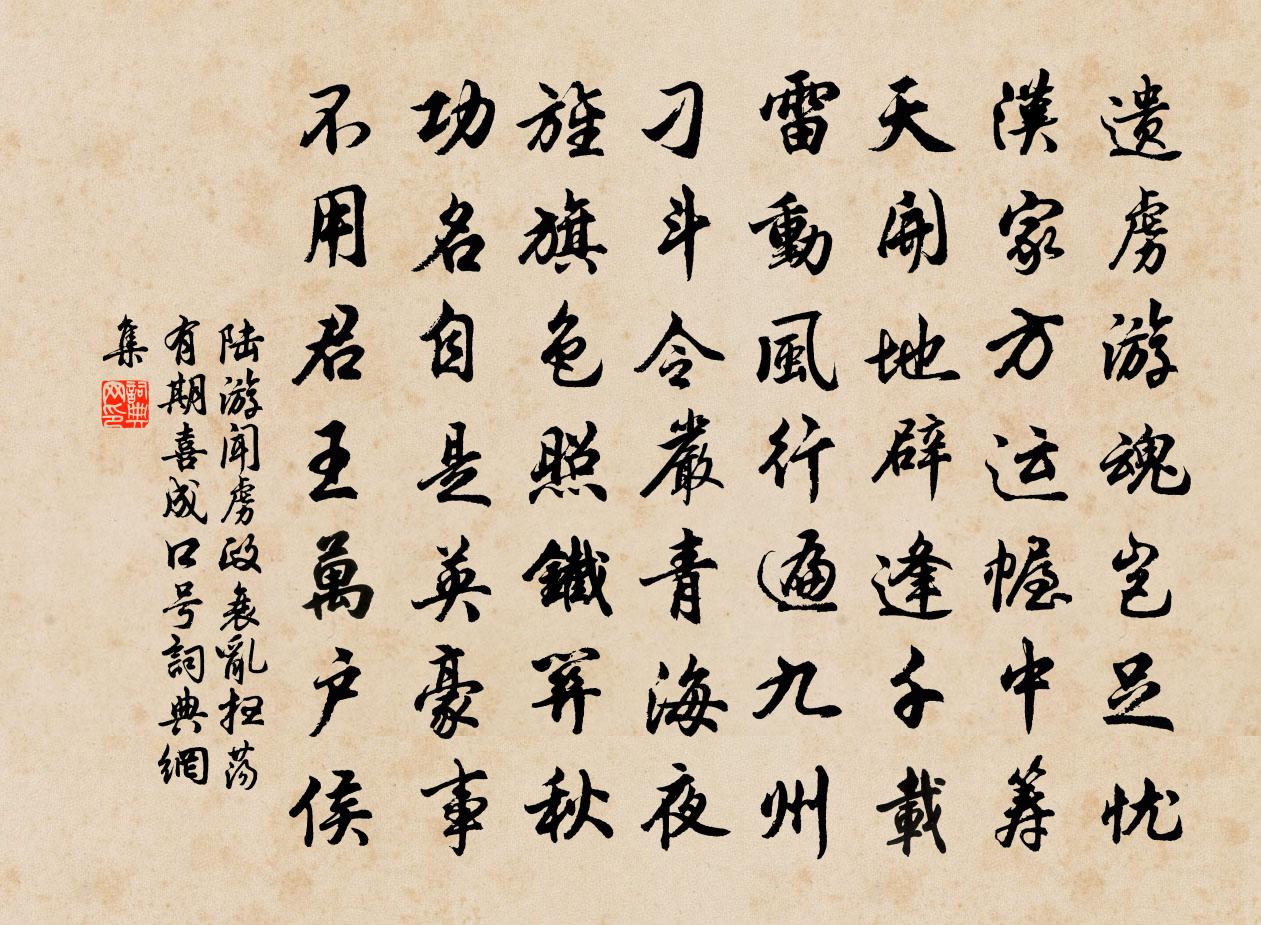 遗虏游魂岂足忧
漢家方运幄中筹
天開地辟逢千載
雷動風行遍九州
刁斗令嚴青海夜
旌旗色照鐵關秋
功名自是英豪事
不用君王萬户侯
陆游闻虏政衰亂扫荡
有期喜成口号詞典網
集
詞典网印